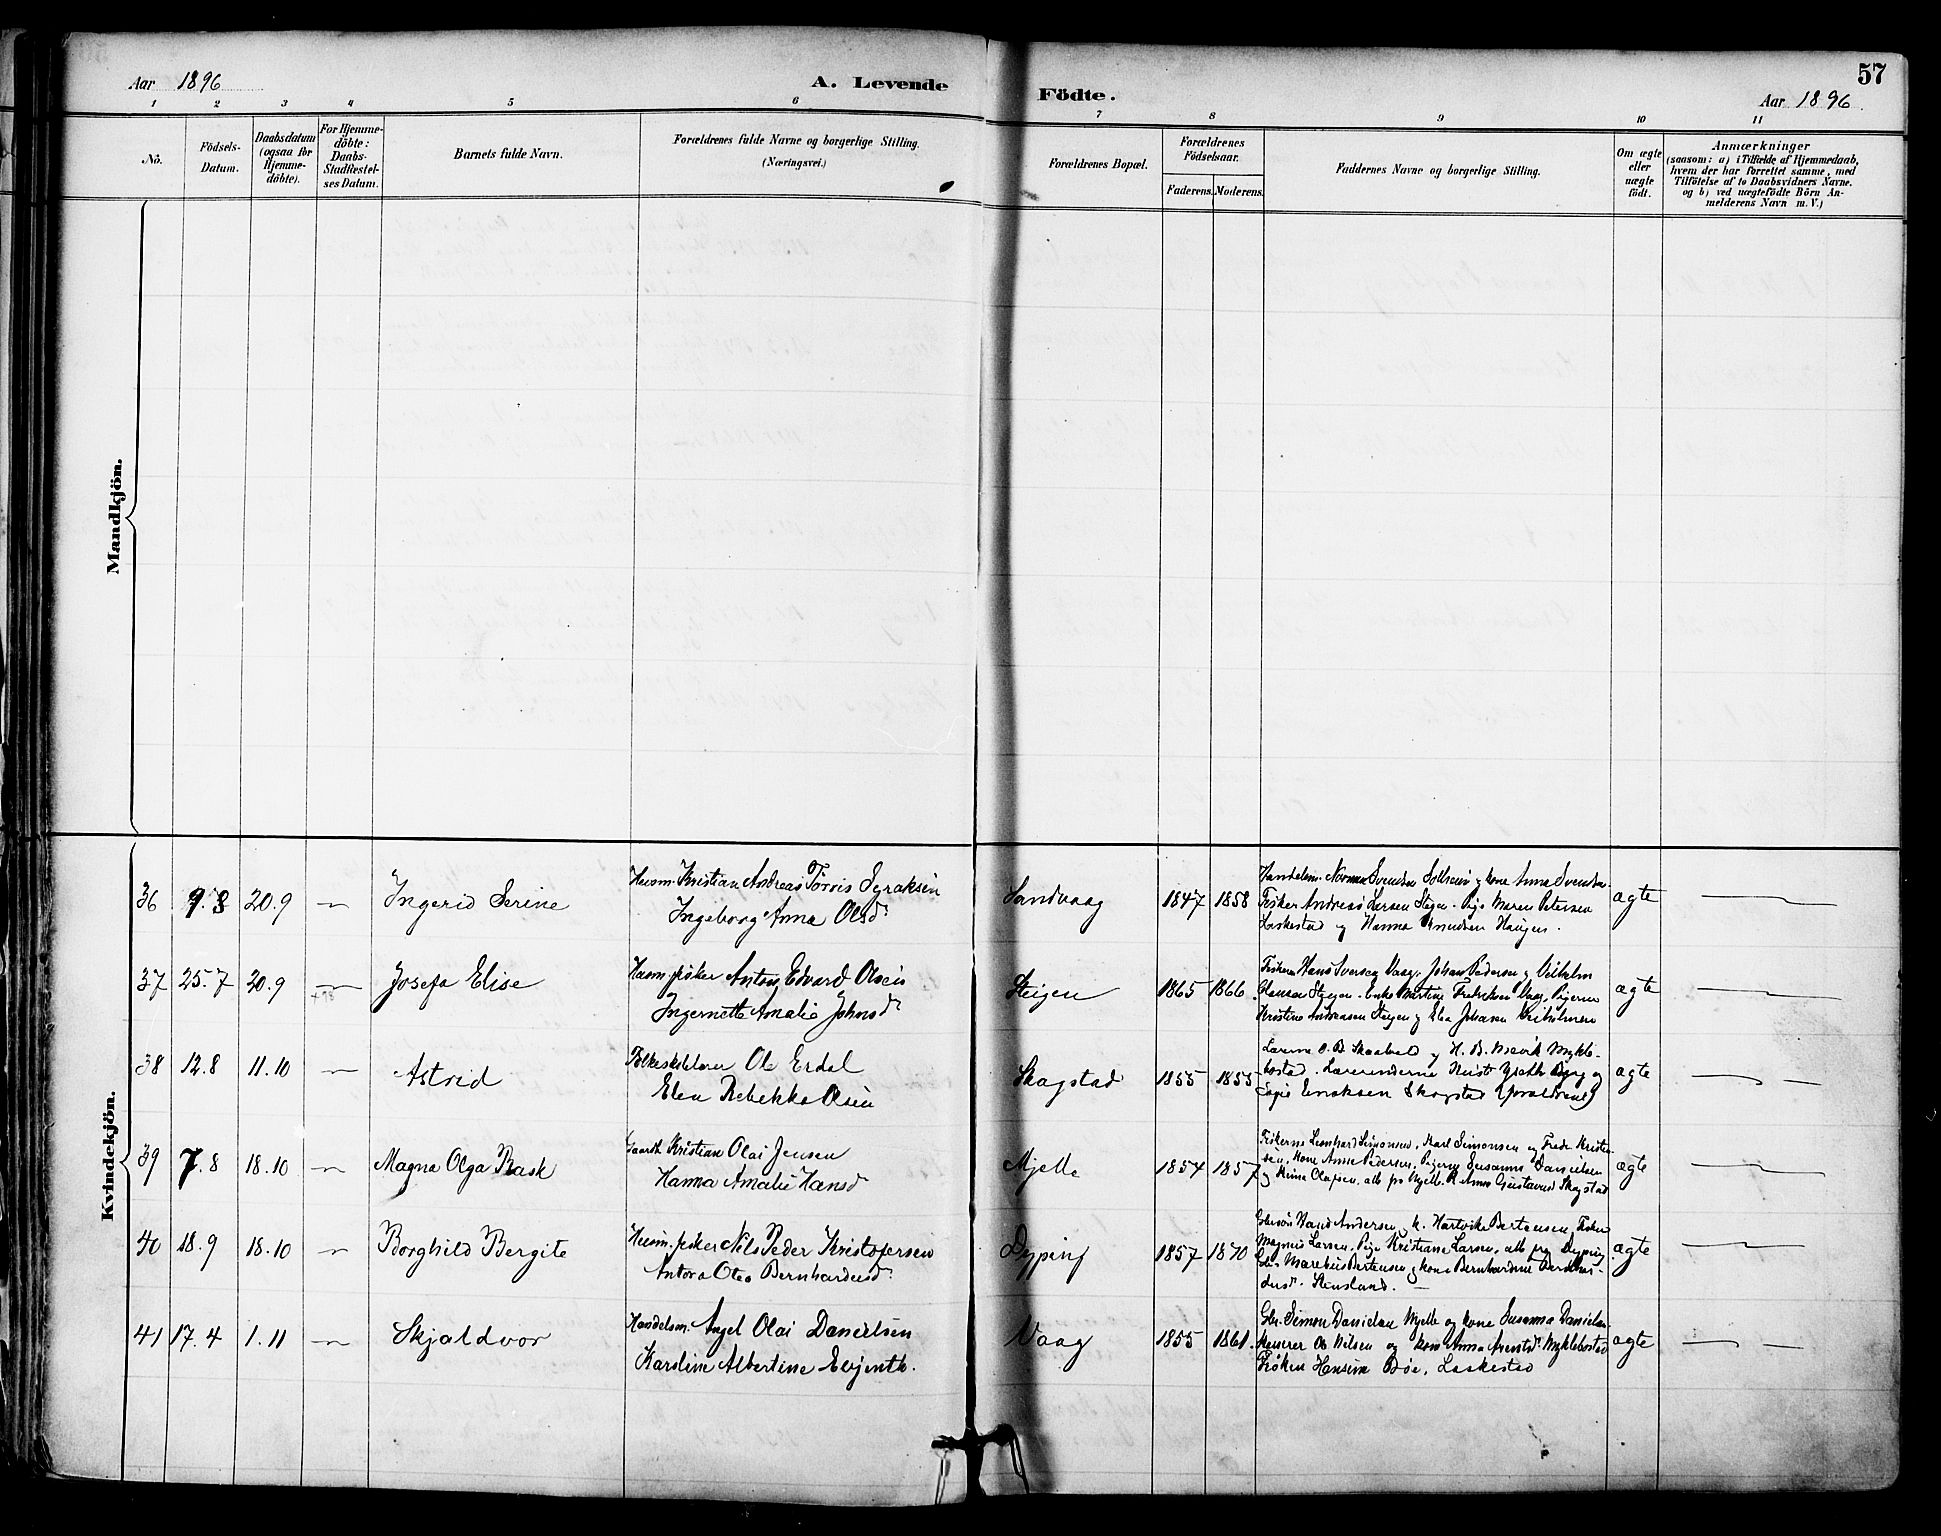 Aar 1896
A. Levende
Födte.
57
Aar 1896
1 2 3 4 5 6 7 8 9 10 11
No.
Födsels-
Datum.
Daabsdatum
(ogsaa for
Hjemme-
döbte).
For Hjemme-
döbte:
Daabs-
Stadfæstel-
ses Datum.
Barnets fulde Navn.
Forældrenes fulde Navne og borgerlige Stilling.
(Næringsvei.)
Forældrenes Bopæl.
Forældrenes
Födselsaar.
Faderens. Moderens.
Faddernes Navne og borgerlige Stilling.
Om ægte
eller
uægte
födt.
Anmærkninger
(saasom: a) i Tilfælde af Hjemmedaab,
hvem der har forrettet samme, med
Tilföielse af to Daabsvidners Navne.
og b) ved uægtefödte Börn An-
melderens Navn m. V.)
Mandkjön.
Kvindekjön.
36 9.8 20.9 — Ingerid Serine
Husm. Kristian Andreas Tørris Syraksen
Ingeborg Anna Olsd.
Sandvaag 1847 1858
Handelsm. Norman Svendsen Solheim og kone Anna Svendsen
Fisker Andreas Larsen Steigen. Pige Maren Petersen
Laskestad og Hanna Knudsen Haugen.
ægte —
37 25.7 20.9 — Josefa Elise
Husm. fisker Anton Edvard Olsen
Ingernette Amalie Johnsd.
Steigen 1865 1866
Fiskerne Hans Vaag, Johan Pedersen og Vilhelm
Hansen Steigen. Enke Martine Fredriksen Vaag, Pigerne
Kristine Andreasen Steigen og Elea Johansen
ægte —
38 12.8 11.10 — Astrid
Folkeskolelærer Ole Erdal
Elen Rebekka Olsen
Skagstad 1855 1855
Lærerne O. B. Skaalvold og H. B. Mevik Mykle-
bostad. Lærerinderne Berg og
Eriksen Skagstad (Forældrene)
ægte — —
39 7.8 18.10 — Magna Olga Rask
Gaardb. Kristian Olai Jensen
Hanna Amalie Hansd.
Mjelle 1854 1857
Fiskerne Leonhard Simonsen, Karl Simonsen og Fredr. Kristen-
sen, kone Anne Pedersen, Pigerne Susanna Danielsen
og Olafsen, alle paa Mjelle. P. Anne Gustavsd. Skagstad
ægte —
40 18.9 18.10 — Borghild Bergite
Husm. fisker Nils Peder Kristofersen
Antora Otea Bernhardusd.
Dyping 1857 1870
Andersen, k. Hartvika Bertensen, Fisker
Magnus Larsen, Pige Kristiane Larsen, alle fra Dyping,
Bertensen og kone Bernhardine Bernhar-
dusd. Stensland. —
ægte —
41 17.4 1.11 — Skjaldvor
Handelsm. Angel Olai Danielsen
Karoline Albertine Evjenth.
Vaag 1855 1861.
Gbr. Simon Danielsen Mjelle og kone Susanna Danielsen
Ole Nilsen og kone Anna Arentsd. Myklebostad
Frøken Hansine Bøe, Laskestad
ægte — —